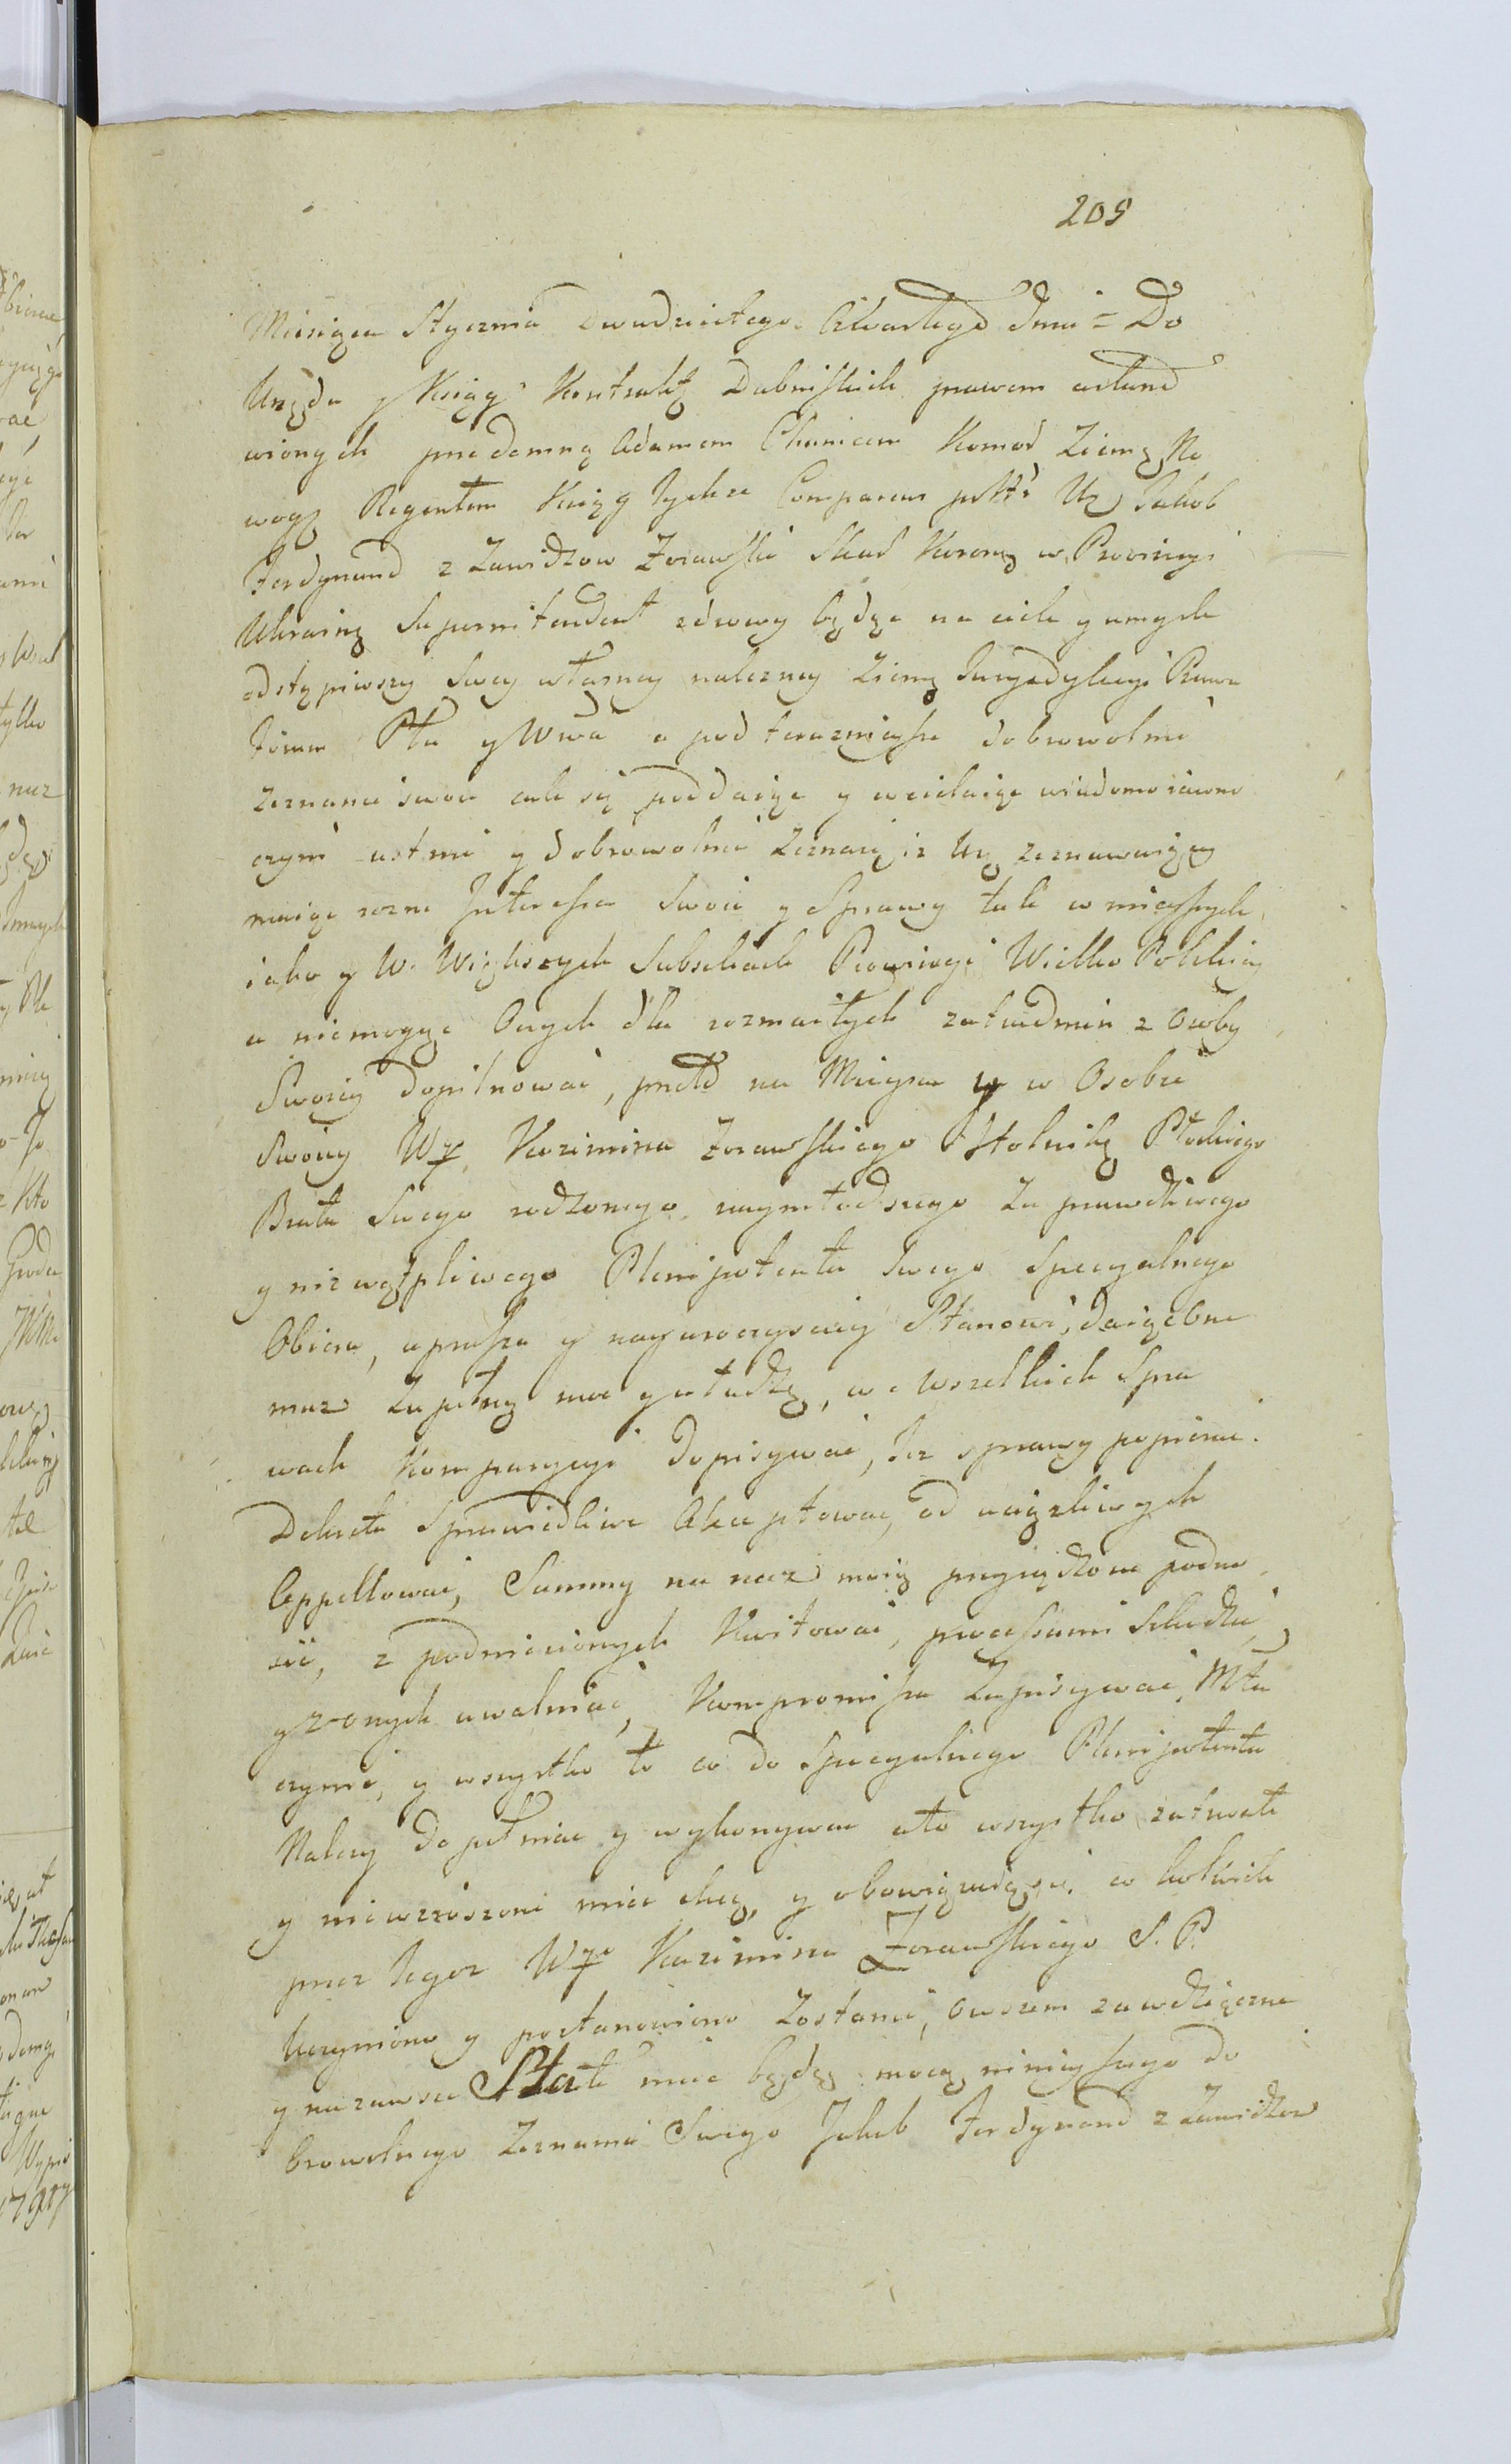 209
Miesiąca Stycznia Dwudziestego Czwartego dnia = Do
Urzędu y Xiąg Kontrakt Dubieńskich prawem
wionych przedemną Adamem Komor Ziem
Regentem Xiąg tychże Comparens Ur Jakob
Ferdynand z Zawidzow Zorawski Skar Koron w Prowincyi
Ukrain Superintendent zdrowy będąc na ciele y umyśle
odstąpiwszy swey własney należney Ziem Juryzdykcyi Prawa
Pttu y Wwa a pod teraznieysze dobrowolne
zeznanie swoie cale się poddaiąc y wcielaiąc wiadomo iawno
czyni ustnie y dobrowolnie zeznaie iż Ur zeznawaiący
maiąc rozne Interessa swoie y Sprawy tak w mieyszych
iako y W. Większych Subseliach Prowincyi Wielko Polskiey
a niemogąc Onych dla rozmaitych zatrudnień z Osoby
Swoiey dopilnować, przeto na Mieyscu y w Osobie
Swoiey Wgo Kazimirza Zorawskiego Stolnika Płockiego
Brata Swego rodzonego naymłodszego za prawdziwego
y niewątpliwego Plenipotenta swego specyalnego
Obiera, uprasza y nayuroczyściey Stanowi, daiąc One
muz Zupełną moc y władzę, we wszelkich Spra
wach Komparycyi dopisywać, też sprawy popierać.
Dekreta Sprawiedliwe Akceptować, od uciążliwych
Appellować, Summy na rzecz moią przysądzone podno
sić, z podniesionych Kwitować, processami
y z onych uwalniać, Kompromissa Zapisywać,
czynić, y wszystko to co do Specyalnego Plenipotenta
Należy dopełniać y wykonywać a to wszystko zatrwałe
y niewzruszone mieć chcę, y obowiązuię się. co kolwiek
przez tegoz Wgo Kazimirza Zorawskiego S. P.
Uczyniono y postanowiono Zostanie, owszem zawdzięczne
y nazawsze Stałe mieć będę mocą ninieyszego do
browolnego Zeznania Swego Jakub Ferdynand z Zawidzow